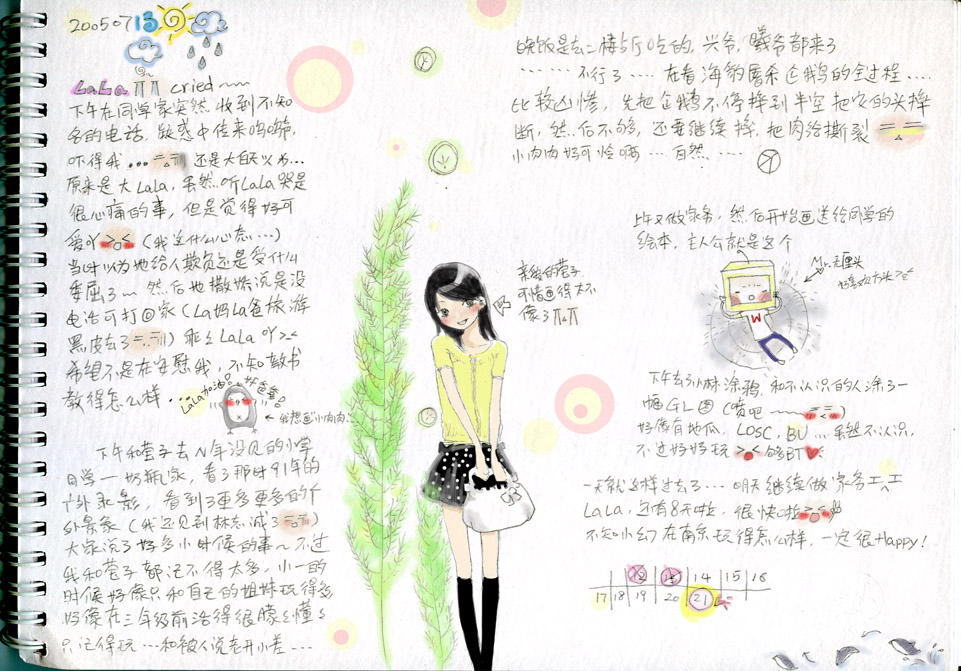 20050713
LaLa ТТ cried~~
下午在同学家突然收到不知
名的电话. 疑惑中传来呜咽.
吓得我... 还是大白天
原来是大LaLa, 虽然听LaLa哭是
很心痛的事, 但是觉得好可
爱吖 (我这什么心态...)
当时以为她给人欺负还是受什么
委屈了~ 然后她撒娇说是没
电话可打回家 (La妈La爸旅游
黑皮去了) 乖乖LaLa吖><
希望不是在安慰我, 不知教书
教得怎么样...
LaLa加油! 好爸爸!
← 我想画小肉肉...
下午和莹子去N年没见的小学
同学 家, 看了那时91年的
录影, 看到了更多更多的
景象 (我还见到林志 了)
大家说了好多小时候的事~ 不过
我和莹子都记不得太多, 小一的
时候好像只和自己的姐妹玩得多
好像在三年级前活得很朦朦懂懂
只记得玩...和被人说老开小差...
晚饭是去二楼5斤吃的, 兴爷, 曦爷都来了
...... 不行了... 在看海豹屠杀企鹅的全过程....
比较凶惨, 先把企鹅不停摔到半空把它的头摔
断, 然后不够, 还要继续摔, 把肉给撕裂
小肉肉好可怜啊... 自然....
亲爱的莹子
可惜画得太不
像了TT
上午又做家务, 然后开始画送给同学的
绘本, 主人公就是这个
Mr.无厘头
W
下午去 林涂鸦, 和不认识的人涂了一
幅GL图 (喷吧~~~ )
好像有地瓜, LOSC, BU ... 虽然不认识,
不过好好玩 够BT
一天就这样过去了... 明天继续做家务工工
LaLa, 还有8天啦, 很快啦
不知小幻在南京玩得怎么样, 一定很Happy!
12 13 14 15 16
17 18 19 20 21